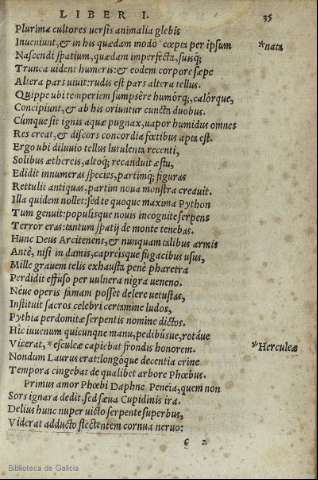 LIBER I. 35
Plurima cultores uersis animalia glebis
Inueniunt, & in his quædam modò cœpta per ipsum *nata
Nascendi spatium, quædam imperfecta, suisq;
Trunca uident humeris: & eodem corpore sæpe
Altera pars uiuit: rudis est pars altera tellus.
Quippe ubi temperiem sumpsêre humórq;, calórque,
Concipiunt, & ab his oriuntur cuncta duobus.
Cumque sit ignis aquæ pugnax, uapor humidus omnes
Res creat, & discors concordia fœtibus apta est.
Ergo ubi diluuio tellus lutulenta recenti,
Solibus æthereis, altoq; recanduit æstu,
Edidit innumeras species, partimq; figuras
Rettulit antiquas, partim noua monstra creauit.
Illa quidem nollet: sed te quoque maxima Python
Tum genuit: populisque nouis incognite serpens
Terror eras: tantum spatij de monte tenebas.
Hunc Deus Arcitenens, & nunquam talibus armis
Antè, nisi in damis, capreisque fugacibus usus,
Mille grauem telis exhausta penè pharetra
Perdidit effuso per uulnera nigra ueneno.
Néue operis famam posset delere uetustas,
Instituit sacros celebri certamine ludos,
Pythia perdomitæ serpentis nomine dictos.
Hic iuuenum quicunque manu, pedibúsue, rotáue
Vicerat, *esculeæ capiebat frondis honorem. *Herculeæ
Nondum Laurus erat: longóque decentia crine
Tempora cingebas de qualibet arbore Phœbus.
Primus amor Phœbi Daphne Peneia, quem non
Sors ignara dedit, sed sæua Cupidinis ira.
Delius hunc nuper uicto serpente superbus,
Viderat adducto flectentem cornua neruo:
c 2
Biblioteca de Galicia